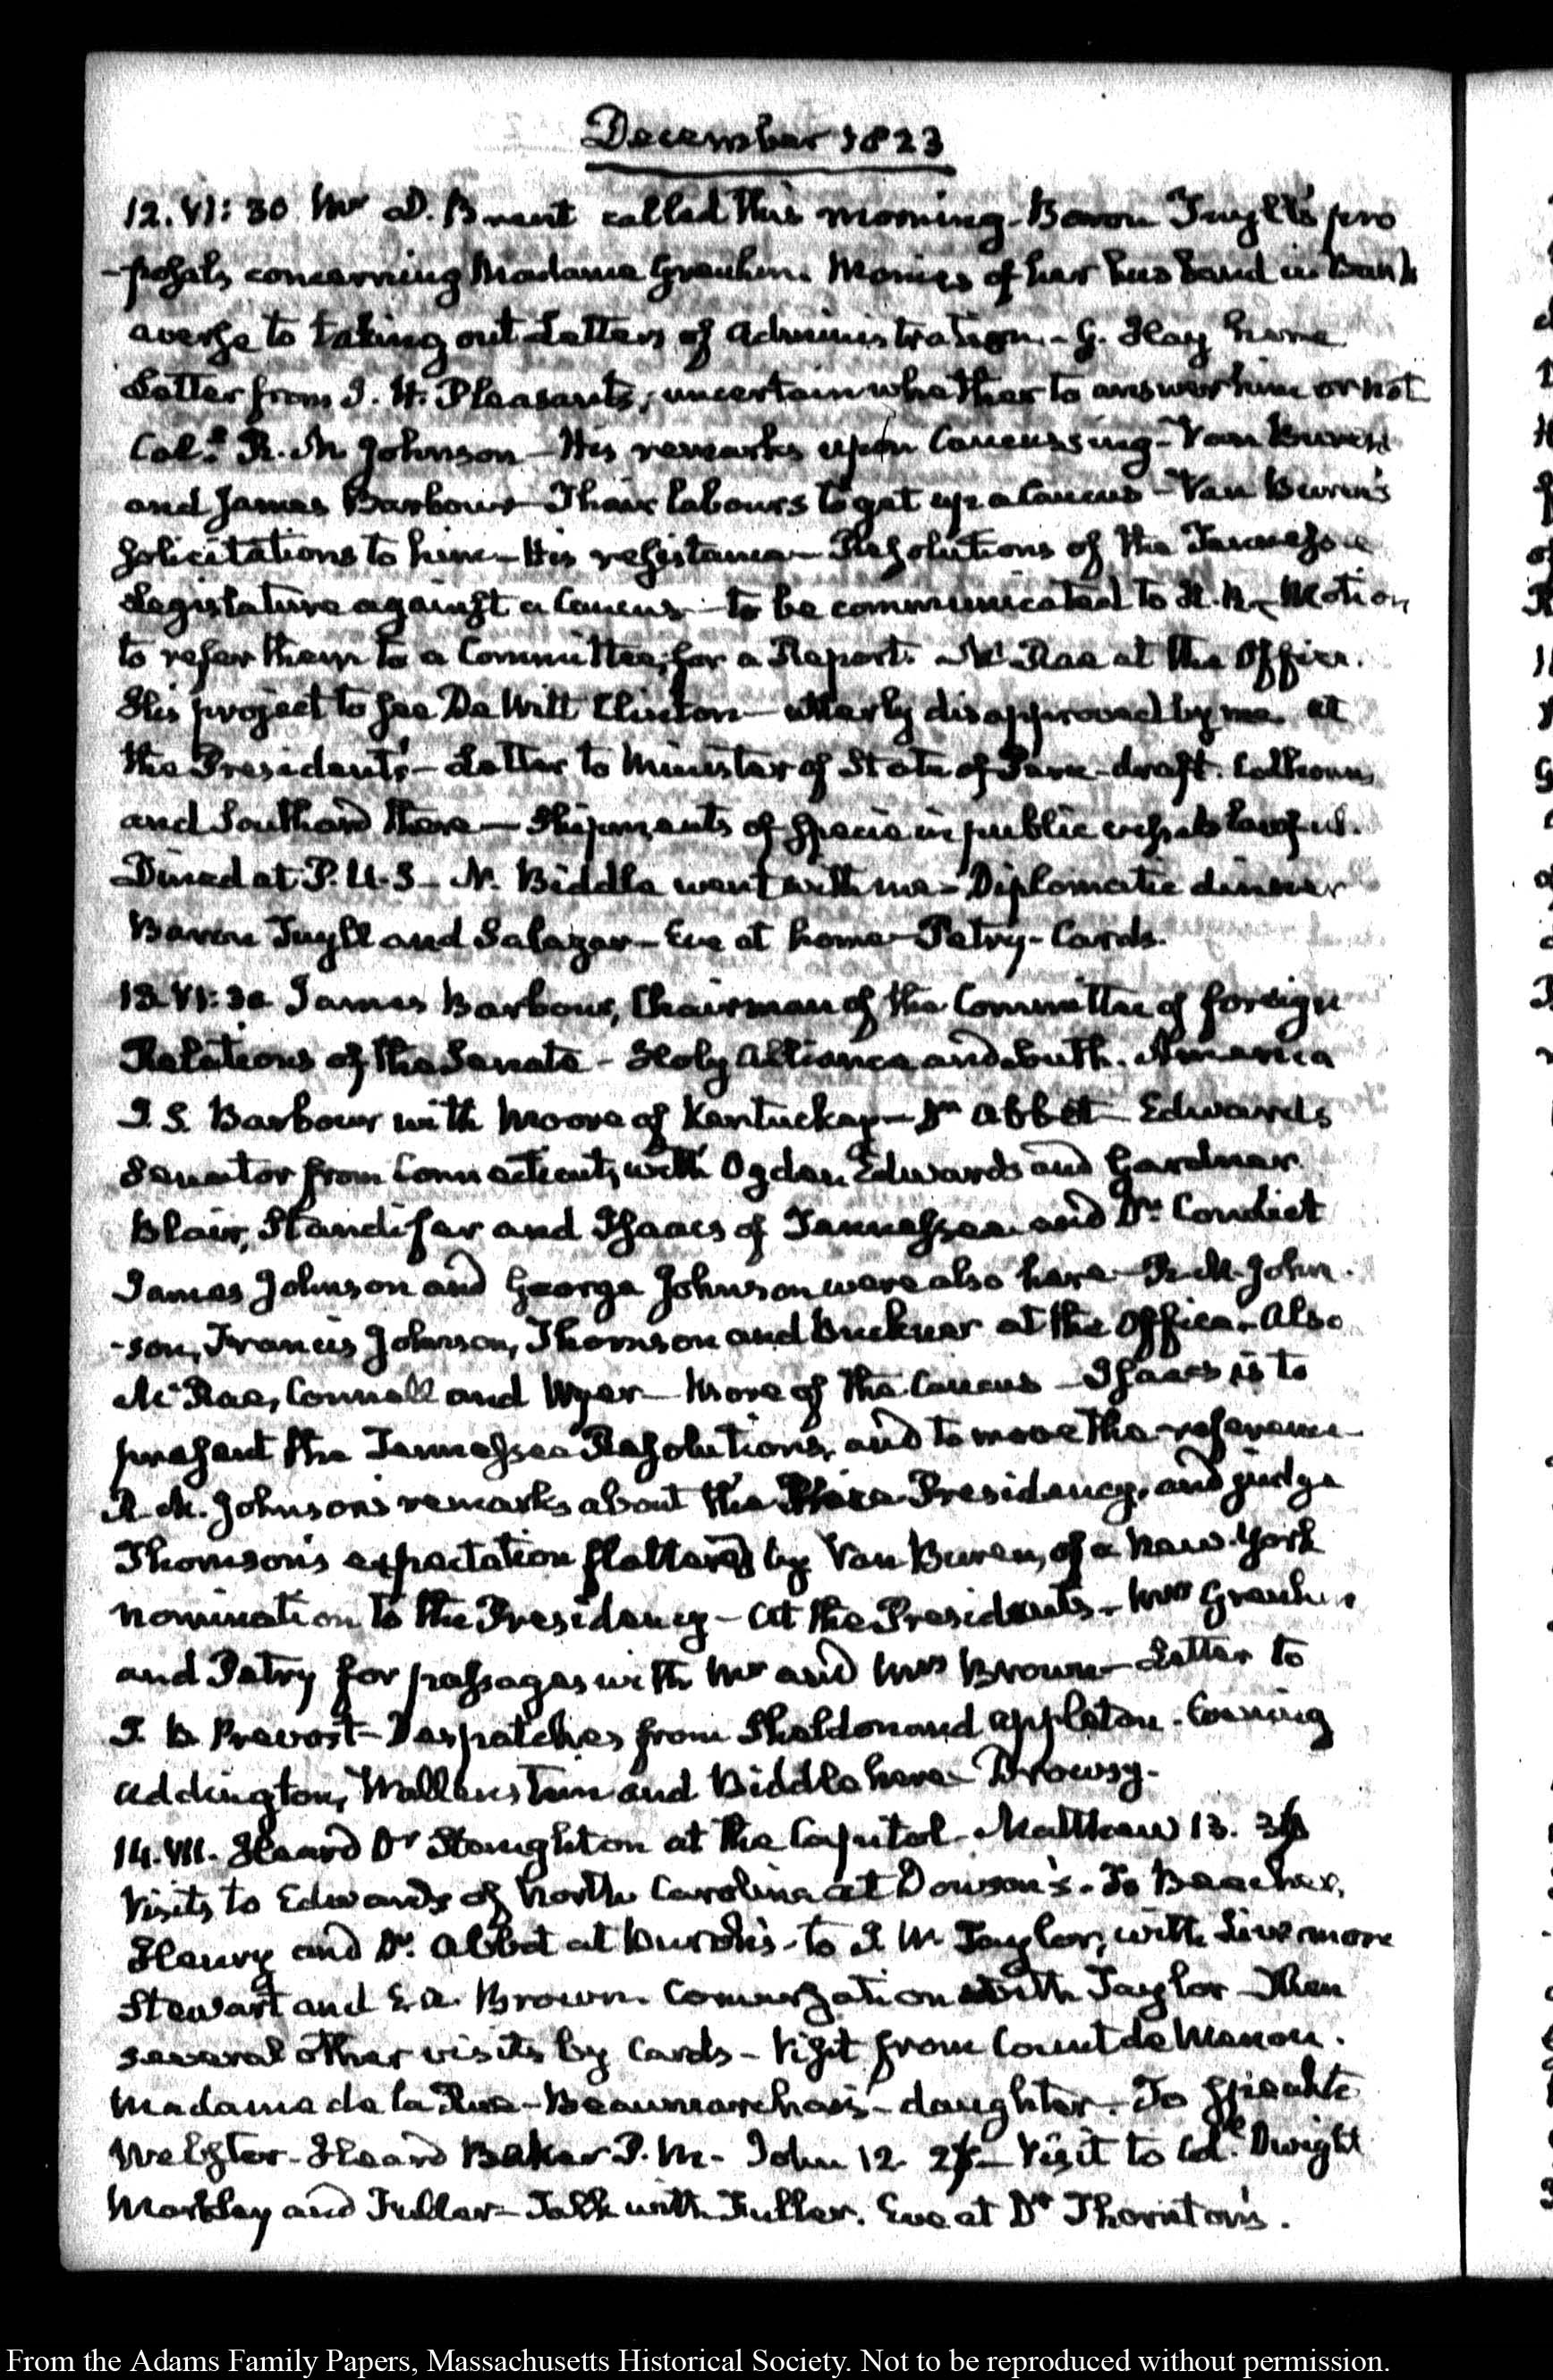 December 1823
12. VI: 30 Mr D. Brent called this morning. Baron Tuyll's pro
-posals concerning Madame Greuhm. Monies of her husband in Bank
averse to taking out Letters of Administration. G. Hay here
Letter from J. H. Pleasants, uncertain whether to answer him or not
Coll. R. M. Johnson — His remarks upon Caucussing — Van Buren
and James Barbour — Their labours to get up a Caucus — Van Buren's
solicitations to him — His resistance — Resolutions of the Tennessee
Legislature against a Caucus — to be communicated to H. R. — Motion
to refer them to a Committee, for a Report. McRae at the Office.
His project to see De Witt Clinton — utterly disapproved by me. At
the President's — Letter to Minister of State of Peru — draft. Calhoun,
and Southard there — Shipments of specie in public vessels lawful.
Dined at P. U. S — N. Biddle went with me — Diplomatic dinner
Baron Tuyll and Salazar — Eve at home — Petry — Cards.
13. VI: 30 James Barbour, Chairman of the Committee of foreign
Relations of the Senate — Holy Alliance and South. America
J. S. Barbour with Moore of Kentuckey — Dr Abbot — Edwards
Senator from Connecticut, with Ogden Edwards and Gardner.
Blair, Standifer and Isaacs of Tennessee. and Dr. Condict
James Johnson and George Johnson were also here — R. M. John-
-son, Francis Johnson, Thomson and Buckner at the Office. Also
McRae, Connell and Wyer — More of the Caucus — Isaacs is to
present the Tennessee Resolutions, and to move the reference
R. M. Johnson's remarks about the Vice-Presidency, and judge
Thomson's expectation flattered by Van Buren, of a New-York
nomination to the Presidency — At the President's — Mrs Greuhm
and Petry for passages with Mr and Mrs Brown — Letter to
J. B. Prevost — Despatches from Sheldon and Appleton. Evening
Addington, Wallenstein and Biddle here — Drowsy.
14. VII. Heard Dr Staughton at the Capitol. Matthew 13.
Visits to Edwards of North Carolina at Dowson's. To Beecher,
Henry and Dr. Abbot at Burch's — to J. W. Taylor, with Livermore
Stewart and E. A. Brown. Conversation with Taylor — Then
several other visits by Cards — Visit from Count de Menou.
Madame de la Rue — Beaumarchais' daughter. To speak to
Webster. Heard Baker P. M. John 12. Visit to Coll. Dwight
Markley and Fuller — Talk with Fuller. Eve at Dr Thornton's.
From the Adams Family Papers, Massachusetts Historical Society. Not to be reproduced without permission.